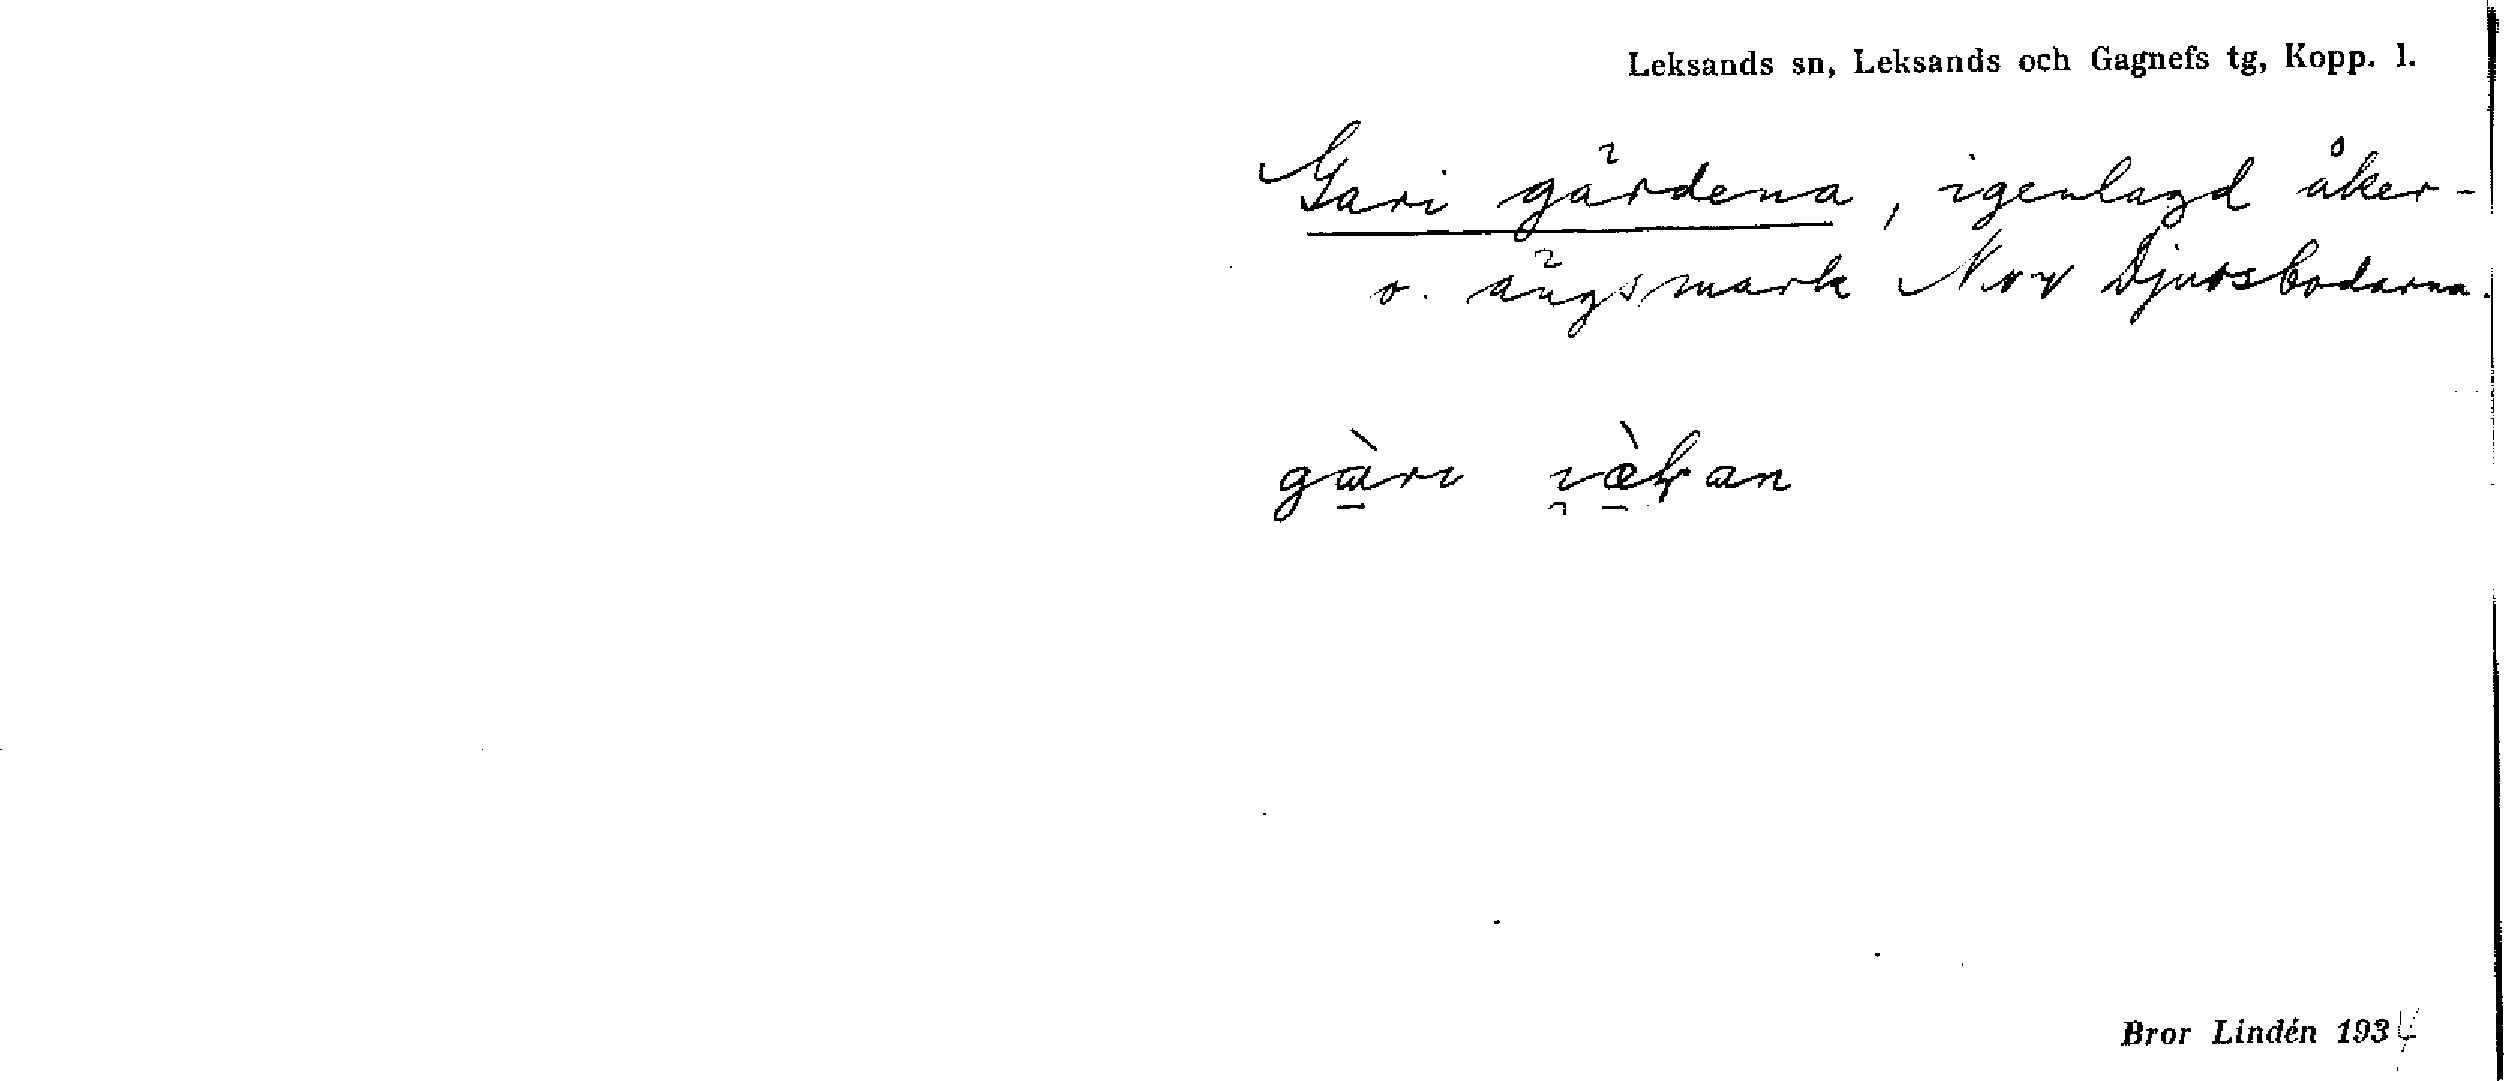 Leksands sn, Leksands och Gagnefs tg, Kopp. l.
Gari gärdena, igenlagd åker-
o. ängsmark Nov Djursbodarna.
gàri
Bror Lindén 1934